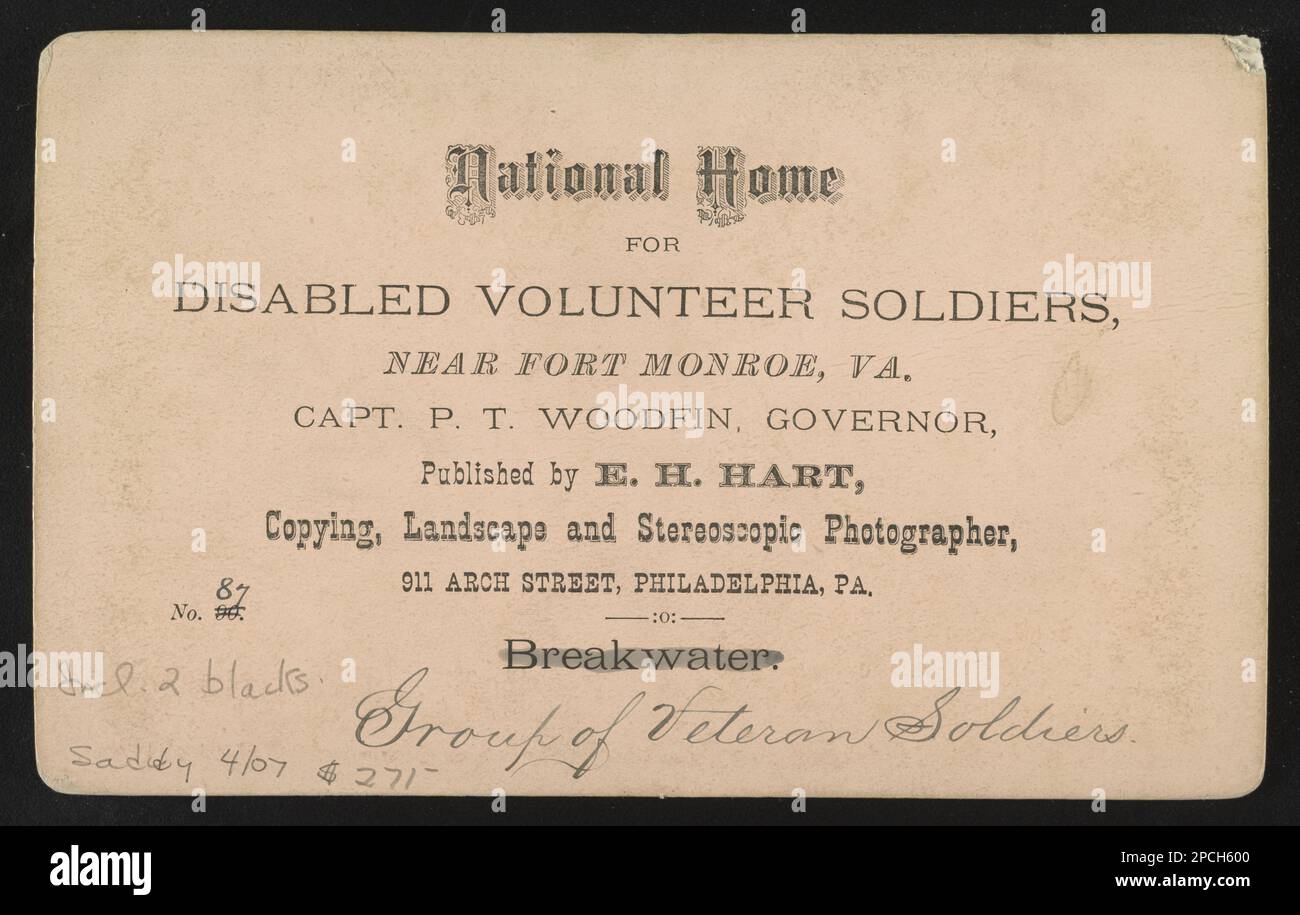 National Home
FOR
DISABLED VOLUNTEER SOLDIERS,
NEAR FORT MONROE, VA.
CAPT. P. T. WOODFIN, GOVERNOR,
Published by E. H. HART,
Copying, Landscape and Stereoscopic Photographer,
911 ARCH STREET, PHILADELPHIA, PA.
87
No. 90.
:o:
Breakwater.
Incl. 2 blacks.
Group of Veteran Soldiers.
4/07 $ 271-
alamy
Image ID: 2PCH600
www.alamy.com